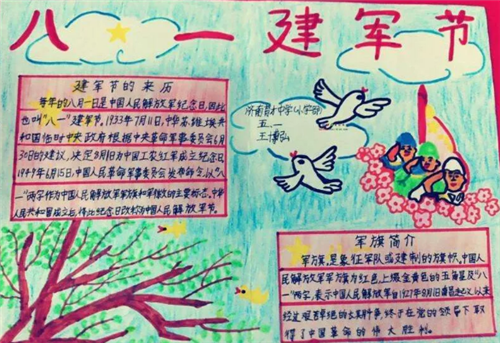 八一建军节
建军节的来历
每年的八月一日是中国人民解放军纪念日,因此
也叫“八一”建军节。1933年7月11日,中华苏维埃共
和国临时中央政府根据中央革命军事委员会6月
30日的建议,决定8月1日为中国工农红军成立纪念日。
1949年6月15日,中国人民革命军事委员会发布命令,以“八
一”两字作为中国人民解放军军旗和军徽的主要标志。中华
人民共和国成立后,将此纪念日改称为中国人民解放军建军节。
济南育才中学(小学部)
五.一
王博弘
军旗简介
军旗,是象征军队或建制的旗帜,中国人
民解放军军旗为红色,上缀金黄色的五角星及“八
一”两字,表示中国人民解放军自1927年8月1日南昌起义以来
经过艰苦卓绝的长期斗争,终于在党的领导下取
得了中国革命的伟大胜利。